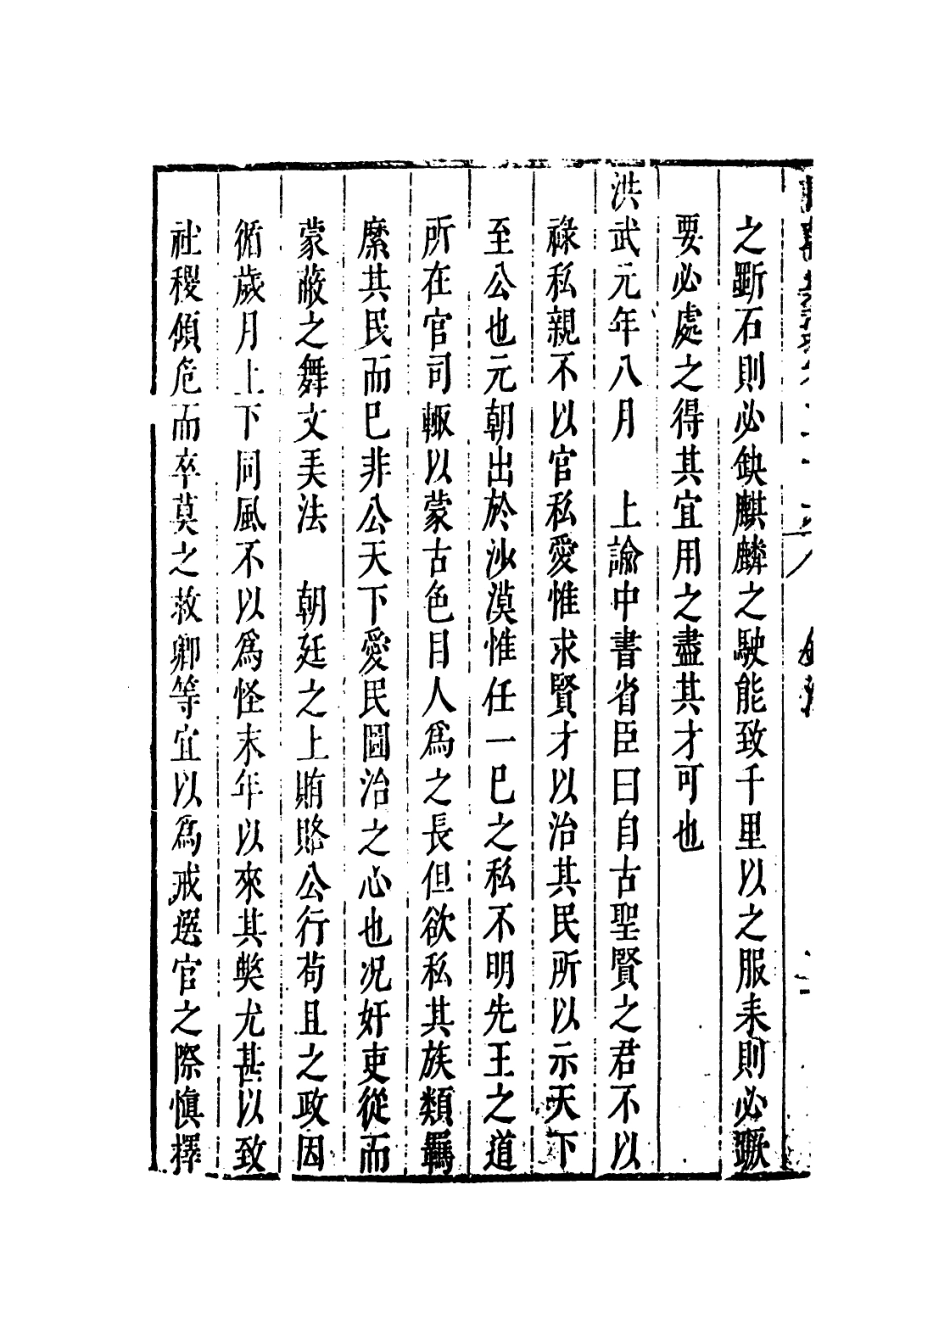 之斲石則必鈌麒麟之駛能致千里以之服耒則必蹶
要必處之得其宜用之盡其才可也
洪武元年八月　上諭中書省臣曰自古聖賢之君不以
祿私親不以官私愛惟求賢才以治其民所以示天下
至公也元朝出於沙漠惟任一巳之私不明先王之道
所在官司輙以蒙古色目人爲之長但欲私其族類羈
縻其民而巳非公天下愛民圖治之心也况奸吏從而
蒙蔽之舞文美法　朝廷之上賄賂公行苟且之政因
循歲月上下同風不以爲怪末年以來其獘尤甚以致
社稷傾危而卒莫之救卿等宜以爲戒選官之際慎擇